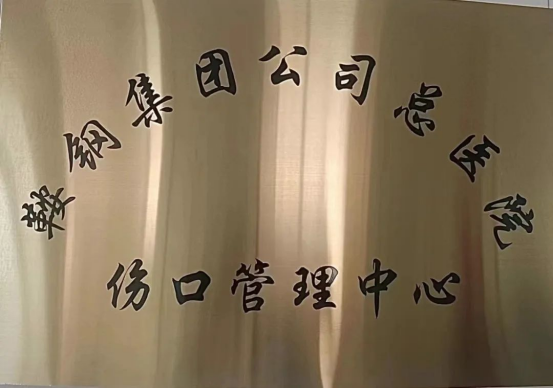 鞍钢集团公司总医院
伤口管理中心